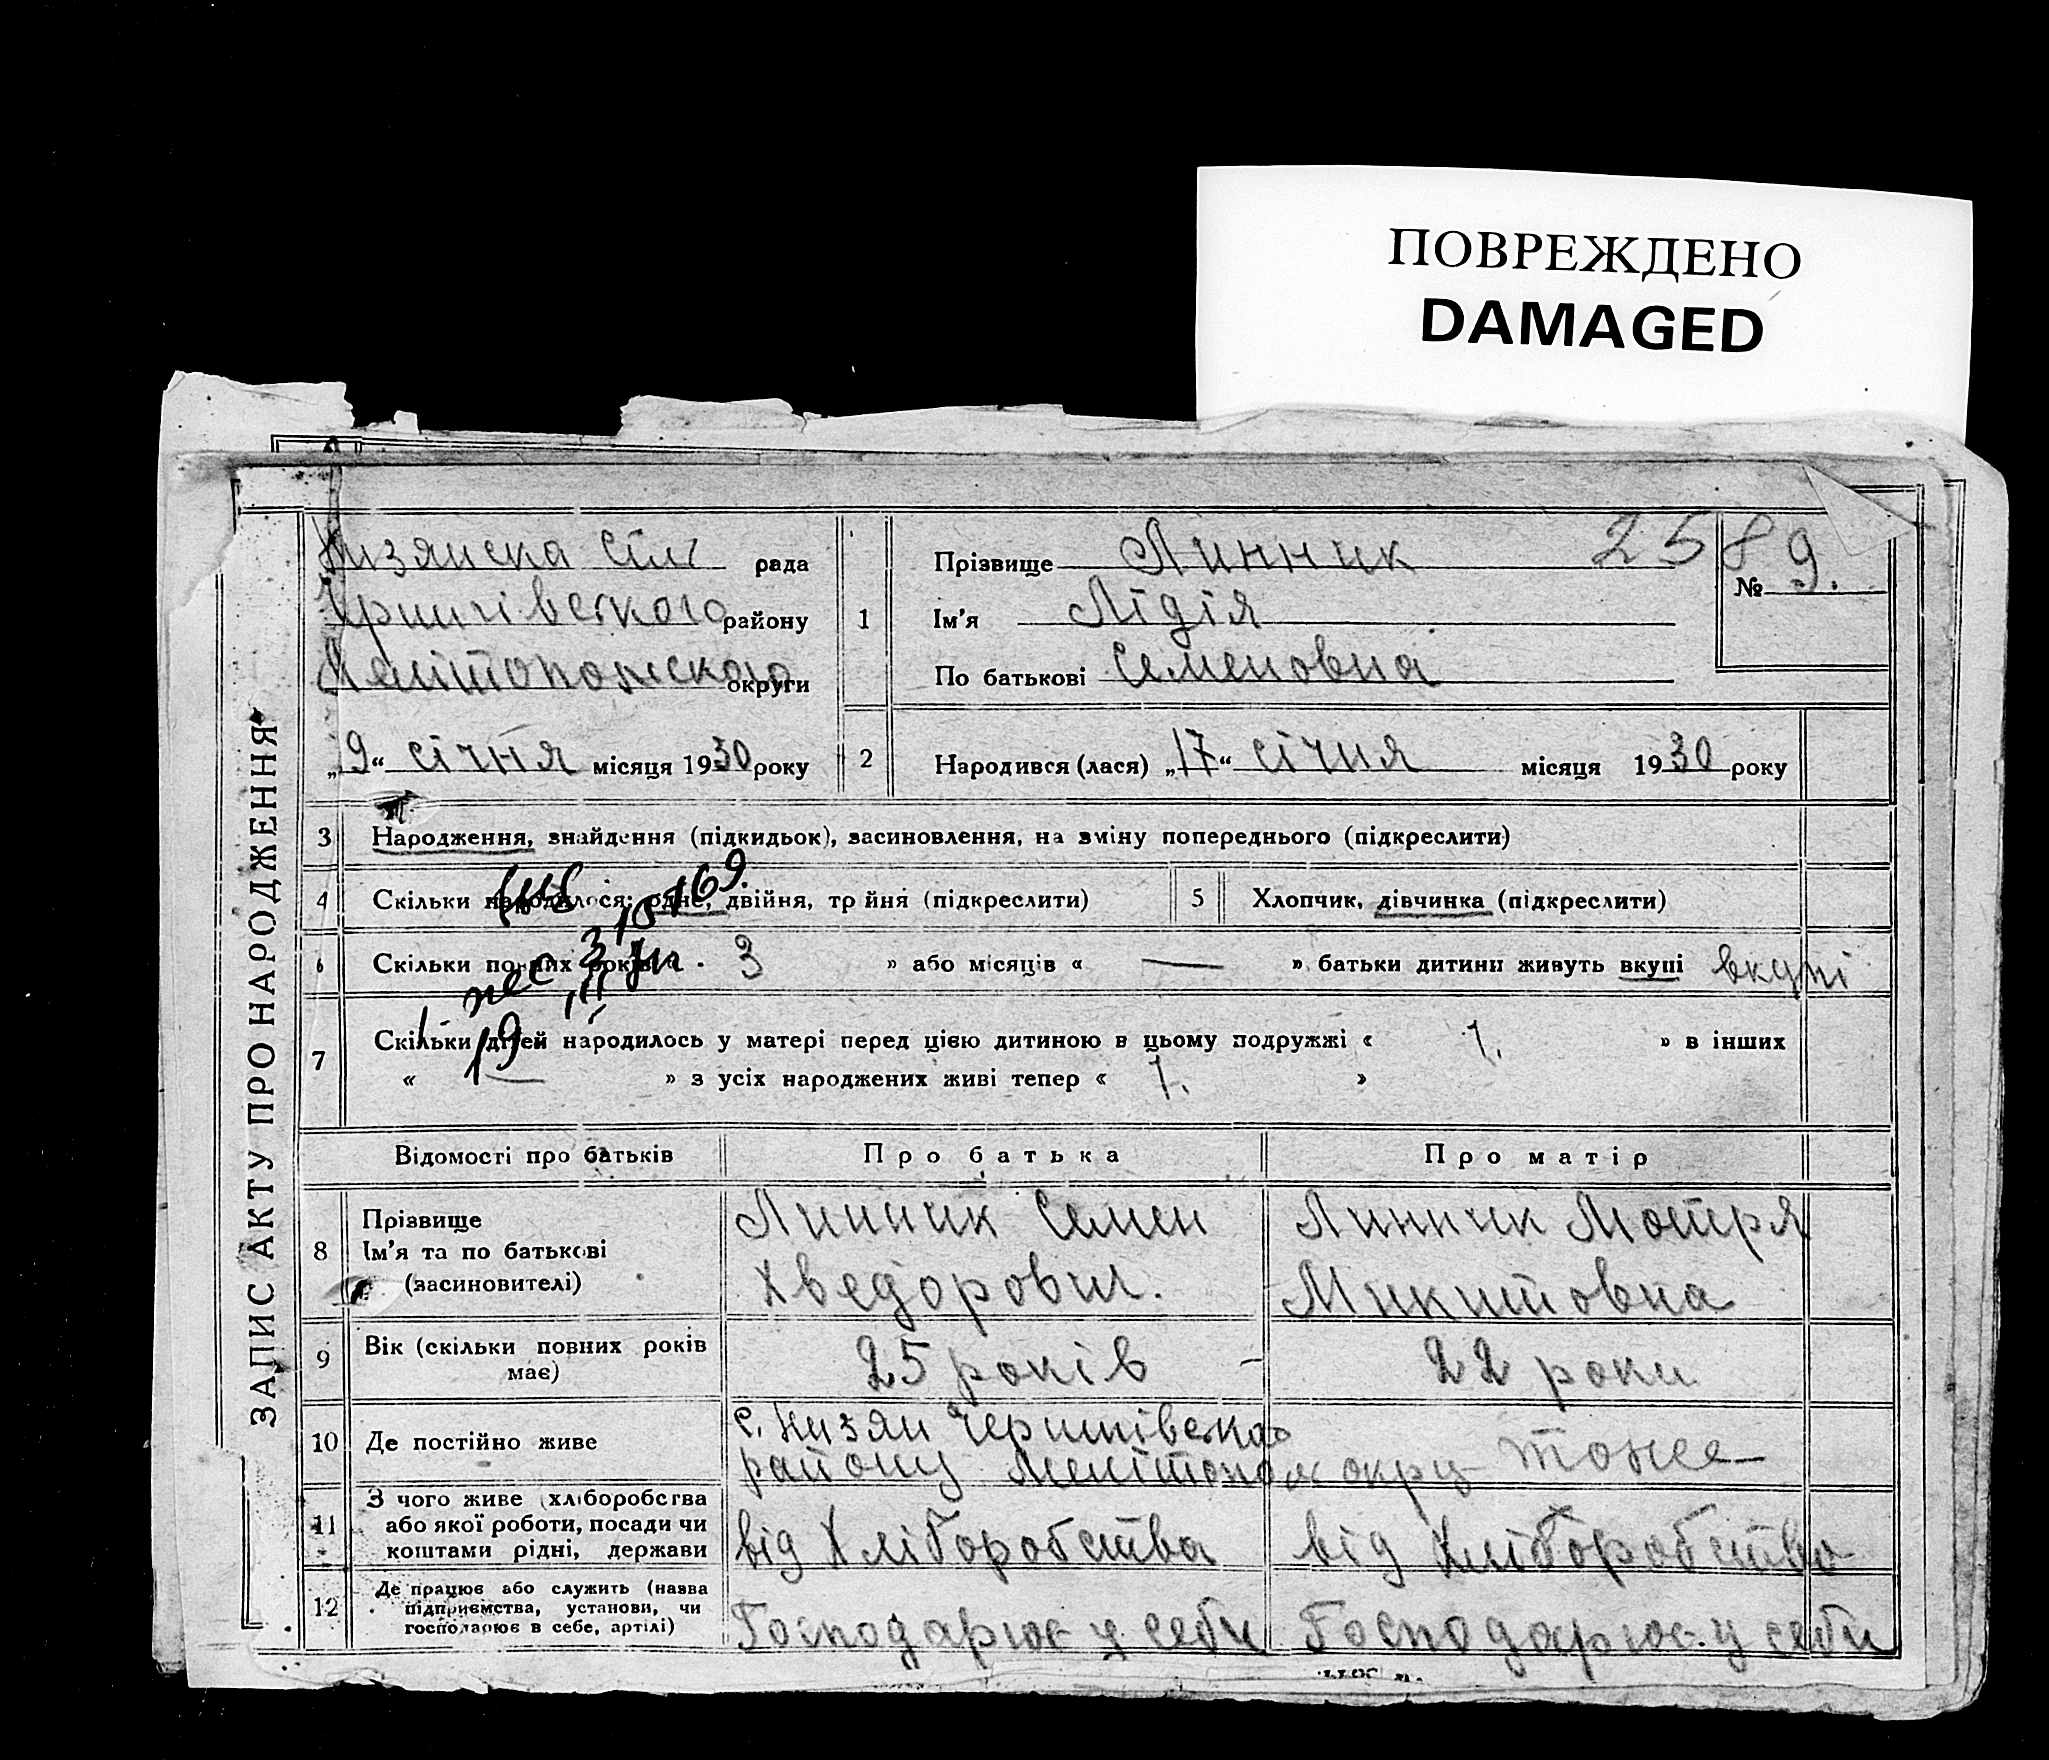 ПОВРЕЖДЕНО
DAMAGED
ЗАПИС АКТУ ПРО НАРОДЖЕННЯ
Низянска Сіль рада
району
округи
„19“ січня місяця 1930 року
1
Прізвище Линник
Ім'я Лідія
По батькові Семеновна
258
№ 9.
2 Народився (лася) „17“ січня місяця 1930 року
3 Народження, знайдення (підкидьок), засиновлення, на зміну попереднього (підкреслити)
4 Скільки народилося: одне, двійня, трійня (підкреслити)
5 Хлопчик, дівчинка (підкреслити)
6 Скільки повних років « 3 » або місяців « — » батьки дитини живуть вкупі вкупі
7 Скільки дітей народилось у матері перед цією дитиною в цьому подружжі « 1. » в інших
« — » з усіх народжених живі тепер « 1. »
Відомості про батьків Про батька Про матір
8 Прізвище
Ім'я та по батькові
(засиновителі)
Линник Семен
Хведорович.
Линник Мотря
Микитовна
9 Вік (скільки повних років
має)
25 років –
22 роки
10 Де постійно живе
с. Низян
району окру
тоже
11 З чого живе (хліборобства
або якої роботи, посади чи
коштами рідні, держави
від Хліборобства
від Хліборобства
12 Де працює або служить (назва
підприємства, установи, чи
господарює в себе, артілі)
Господарює у себи
Господарює у себи